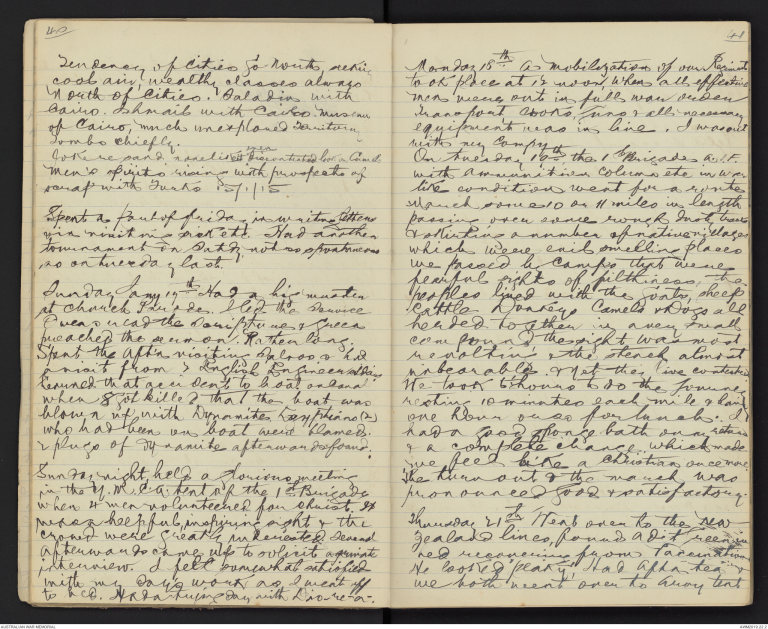 40
Tendency of cities go North, seeking
cool air, wealthy classes always
North of Cities. Saladin with
Cairo. Ishmail with Cairo museum
of Cairo, much unexplored Territory
Tombs chiefly.
Men's spirits rising with prospects of
scrap with Turks 15/1/15
Spent a part of friday in writing letters
in visiting sick etc. Had another
tournament on Satdy, not so spontaneous
as on tuesday last.
Sunday Jany 17th Had a big muster
at Church Parade. I led the service
read the Scripture & Green
preached the sermon. Rather long.
Spent the aftn visiting & had
a visit from 3 English Engineers
learned that accident to boat on canal
when 8 got killed that the boat was
blown up with Dynamite. Egyptians (2)
who had been on boat were blamed.
2 plugs of dynamite afterwards found.
Sunday night, held a glorious meeting
in the Y.M.C.A. tent of the 1st Brigade
when 4 men volunteered for Christ. It
was a helpful, inspiring sight & the
crowd were greatly interested. Several
afterwards came up to solicit a private
interview. I felt somewhat satisfied
with my day's work as I went off
to bed. Had a trying day with
41
Monday 18th A mobilization of our Regiments
took place at 12 noon when all effective
men were out in full war order
transport cooks, guns & all necessary
equipment was in line. I was out
with my Compy
On Tuesday 19th the 1st Brigade A.I.F.
with ammunition column etc in war
like condition went for a route
march some 10 or 11 miles in length
passing over some rough Dust tracks
& skirting a number of native villages
which were evil smelling places
we passed by camps that were
fearful sights of filthiness, the
peoples lived with the goats, sheep
cattle Donkeys Camels & dogs all
herded together in a very small
compound the sight was most
revolting & the stench almost
unbearable. & Yet they live contented
We took 5 hours to do the journey
resting 10 minutes each mile & having
one hour over for lunch. I
had a good sponge bath on return
& a complete change which made
me feel like a Christian once more
The turn out & the march was
pronounced good & satisfactory.
Thursday 21st Went over to the New
Zealand lines, found
recovering from Vaccination
He looked "peaky". Had Aftn tea
we both went over to Army tent
AUSTRALIAN WAR MEMORIAL